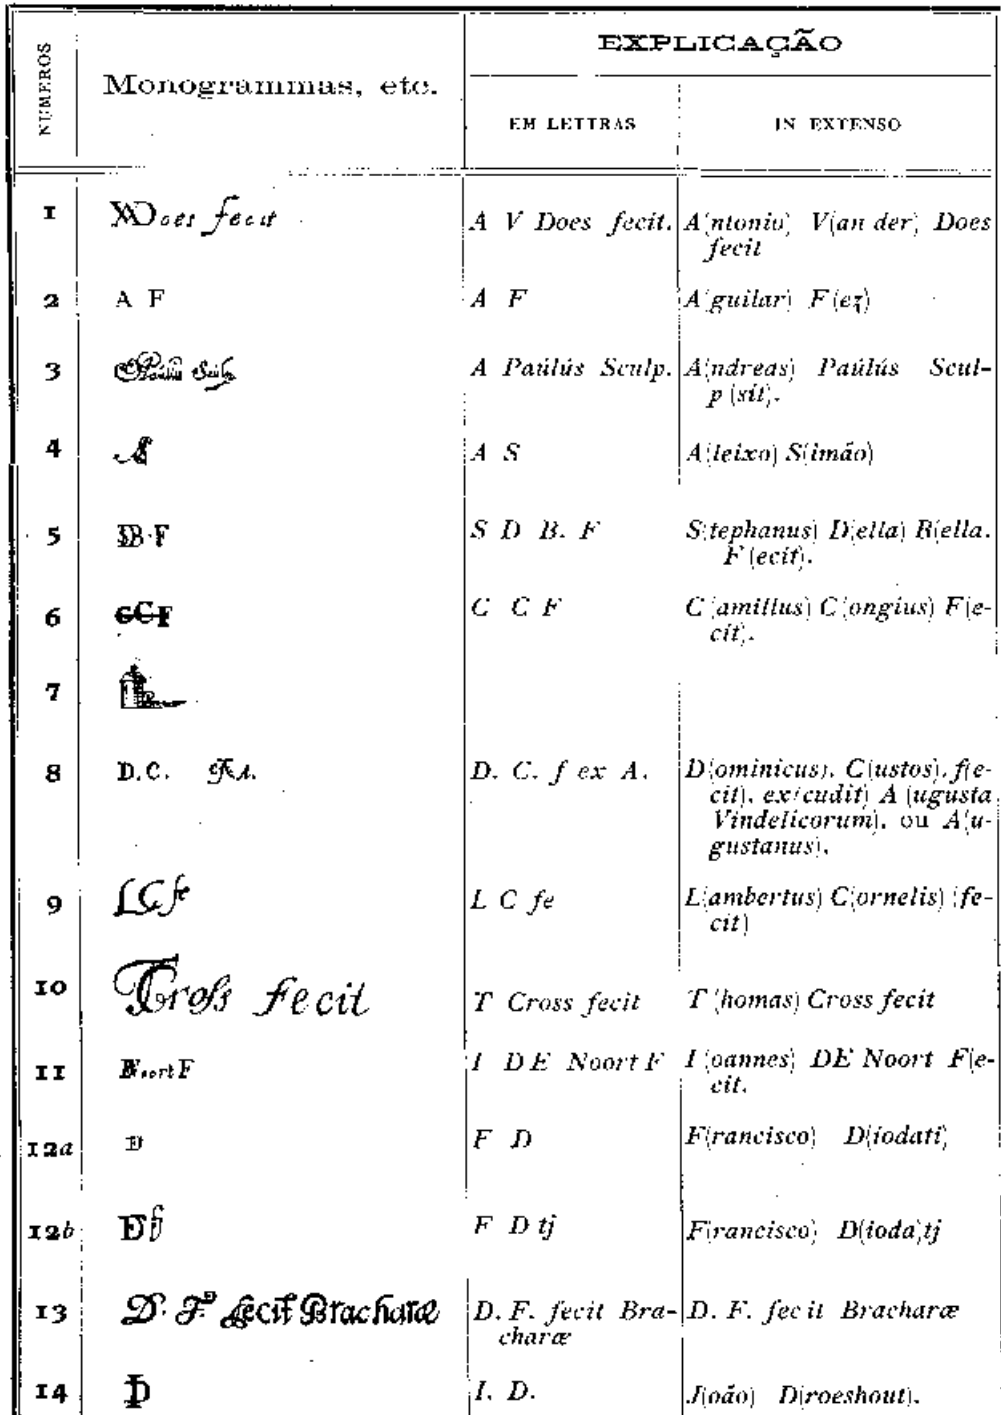 NUMEROS
Monogrammas, etc.
EXPLICAÇÃO
EM LETTRAS
IN EXTENSO
1 AVDoes fecit A V Does fecit. A(ntonio) V(an der) Does
fecit
2 A F A F A(guilar) F(ez)
3 APaúlús Sculp A Paúlús Sculp. A(ndreas) Paúlús Scul-
p(sit).
4 AS A S A(leixo) S(imão)
5 SDB·F S D B. F S(tephanus) D(ella) B(ella.
F(ecit).
6 CCF C C F C(amillus) C(ongius) F(e-
cit).
7
8 D.C. f ex A. D. C. f ex A. D(ominicus). C(ustos). f(e-
cit). ex(cudit) A(ugusta
Vindelicorum). ou A(u-
gustanus).
9 L C fe L C fe L(ambertus) C(ornelis) (fe-
cit)
10 TCross fecit T Cross fecit T(homas) Cross fecit
11 IDENoort F I DE Noort F I(oannes) DE Noort F(e-
cit.
12a FD F D F(rancisco) D(iodati)
12b FDtj F D tj F(rancisco) D(ioda)tj
13 D. F. fecit Bracharæ D. F. fecit Bra- D. F. fecit Bracharæ
charæ
14 ID I. D. J(oão) D(roeshout).